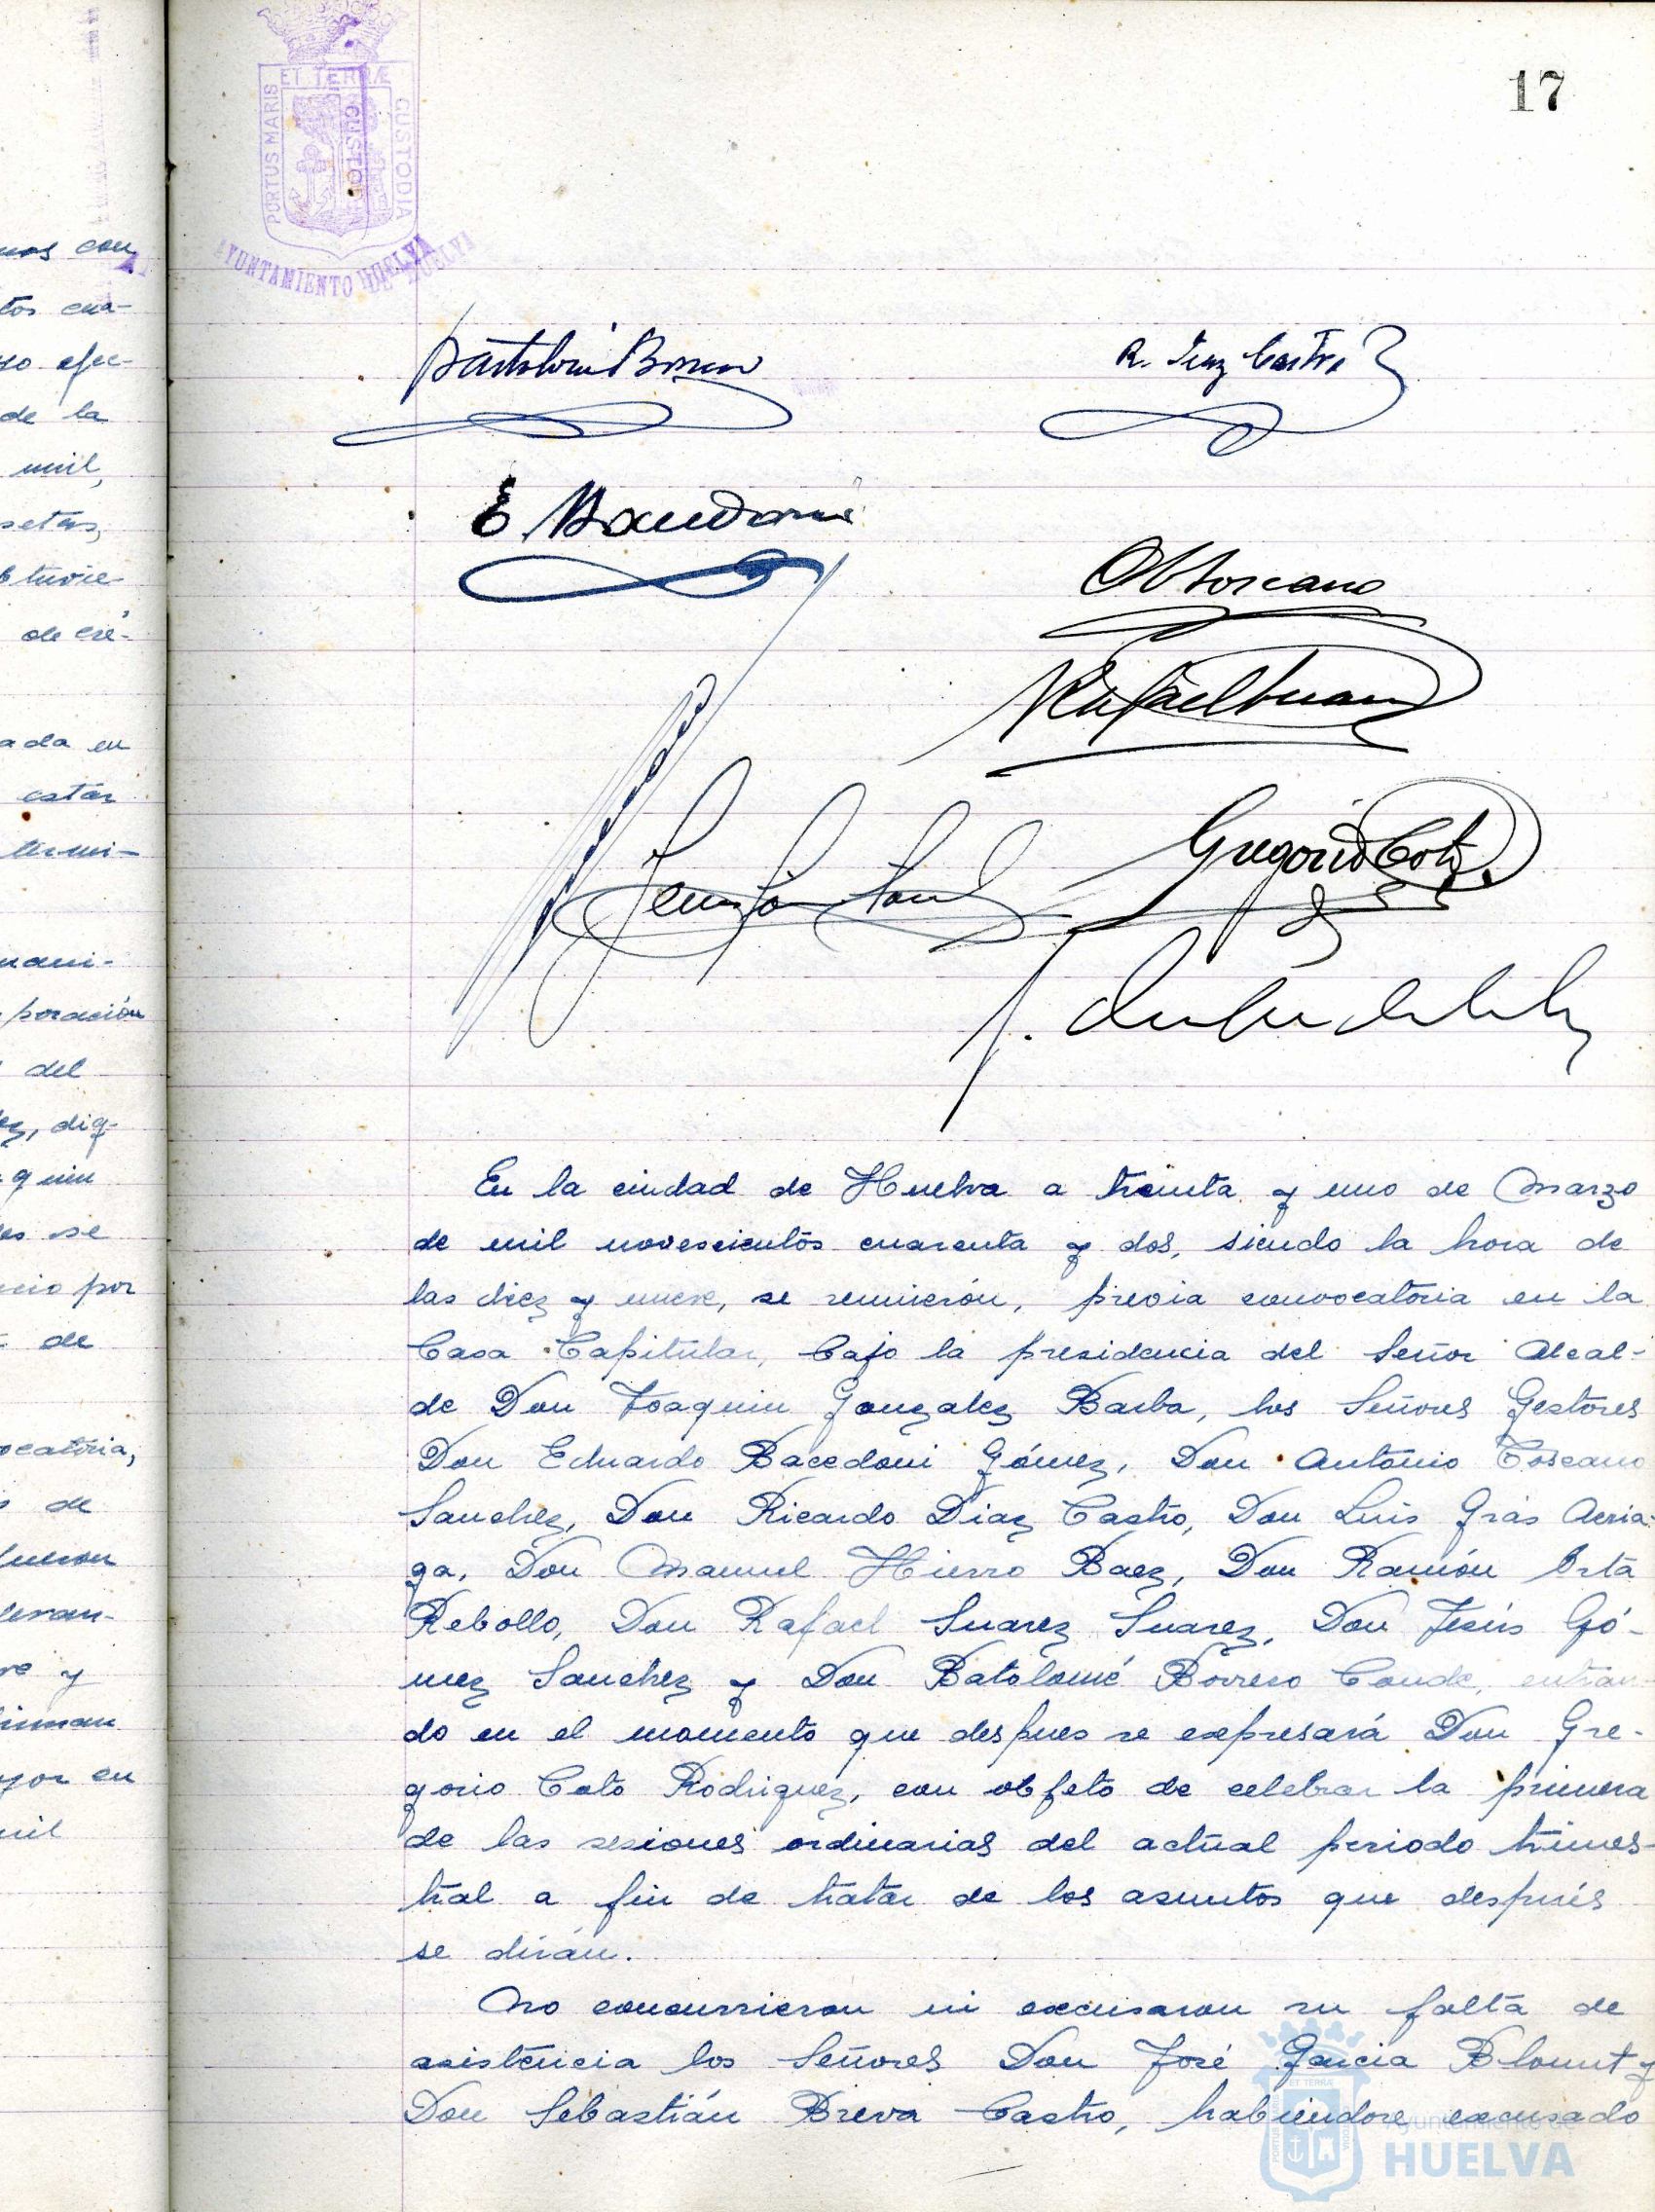 17
PORTUS MARIS
ET TERRÆ
CUSTODIA
AYUNTAMIENTO DE HUELVA
nos con
tos cua-
so efec-
de la
mil,
setas,
btuvie-
de cré-
ada en
estar
termi-
mani-
poración
del
ez, dig-
quin
es se
cio por
de
ocatoria,
s de
fueron
levan-
re y
firman
yor en
mil
R. Diaz Castro
Rafael Suarez
Gregorio Coto
En la ciudad de Huelva a treinta y uno de Marzo
de mil novescientos cuarenta y dos, siendo la hora de
las diez y nueve, se reunierón, previa convocatoria en la
Casa Capitular, bajo la presidencia del Señor Alcal-
de Don Joaquin Gonzalez Barba, los Señores Gestores
Don Eduardo Bacedoni Gómez, Don Antonio Toscano
Sanchez, Don Ricardo Diaz Castro, Don Luis Gras Arria-
ga, Don Manuel Hierro Baez, Don Ramón Orta
Rebollo, Don Rafael Suarez Suarez, Don Jesús Gó-
mez Sanchez y Don Batolomé Borrero Conde, entran-
do en el momento que despues se expresará Don Gre-
gorio Coto Rodriguez, con objeto de celebrar la primera
de las sesiones ordinarias del actual periodo trimes-
tral a fin de tratar de los asuntos que después
se dirán.
No concurrieron ni excusaron su falta de
asistencia los Señores Don José Garcia Blount y
Don Sebastián Breva Castro, habiendose excusado
Ayuntamiento de
HUELVA